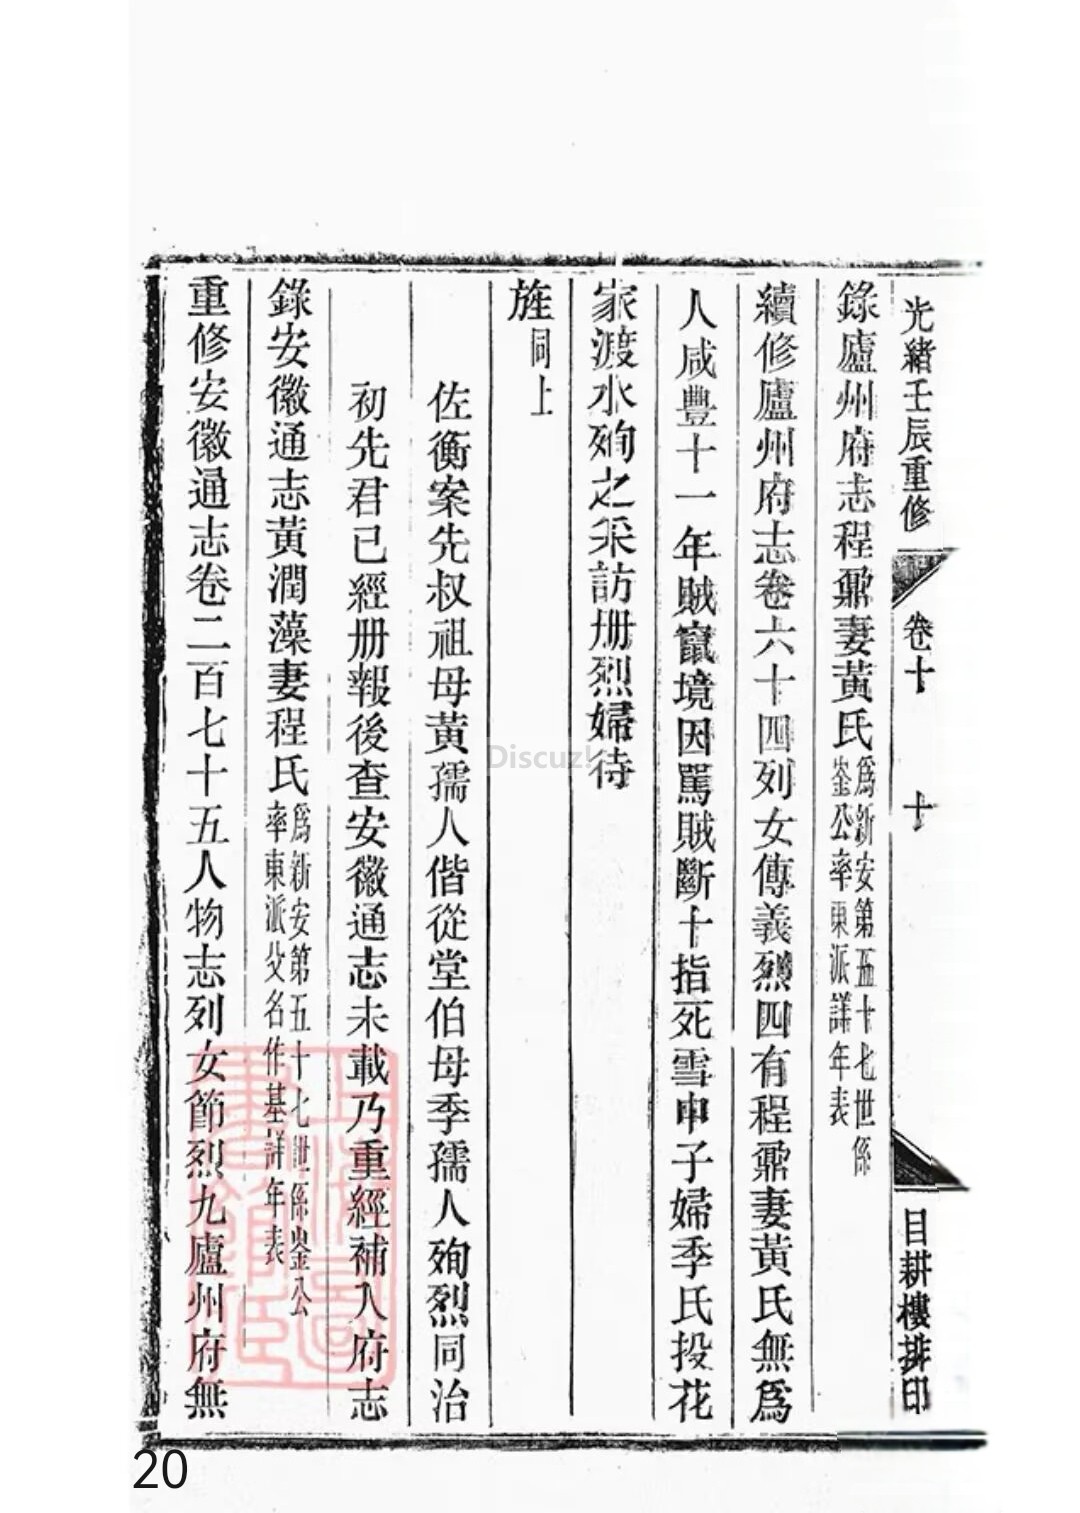 光緒壬辰重修
卷十
十
目耕樓排印
錄廬州府志程鼐妻黃氏
爲新安第五十七世係
崟公率東派詳年表
續修廬州府志卷六十四列女傳義烈四有程鼐妻黃氏無爲
人咸豐十一年賊竄境因罵賊斷十指死雪申子婦季氏投花
家渡水殉之采訪册烈婦待
旌同上
佐衡案先叔祖母黃孺人偕從堂伯母季孺人殉烈同治
初先君已經册報後查安徽通志未載乃重經補入府志
錄安徽通志黃潤藻妻程氏
爲新安第五十七世係崟公
率東派父名作基詳年表
重修安徽通志卷二百七十五人物志列女節烈九廬州府無
Discuz!
20